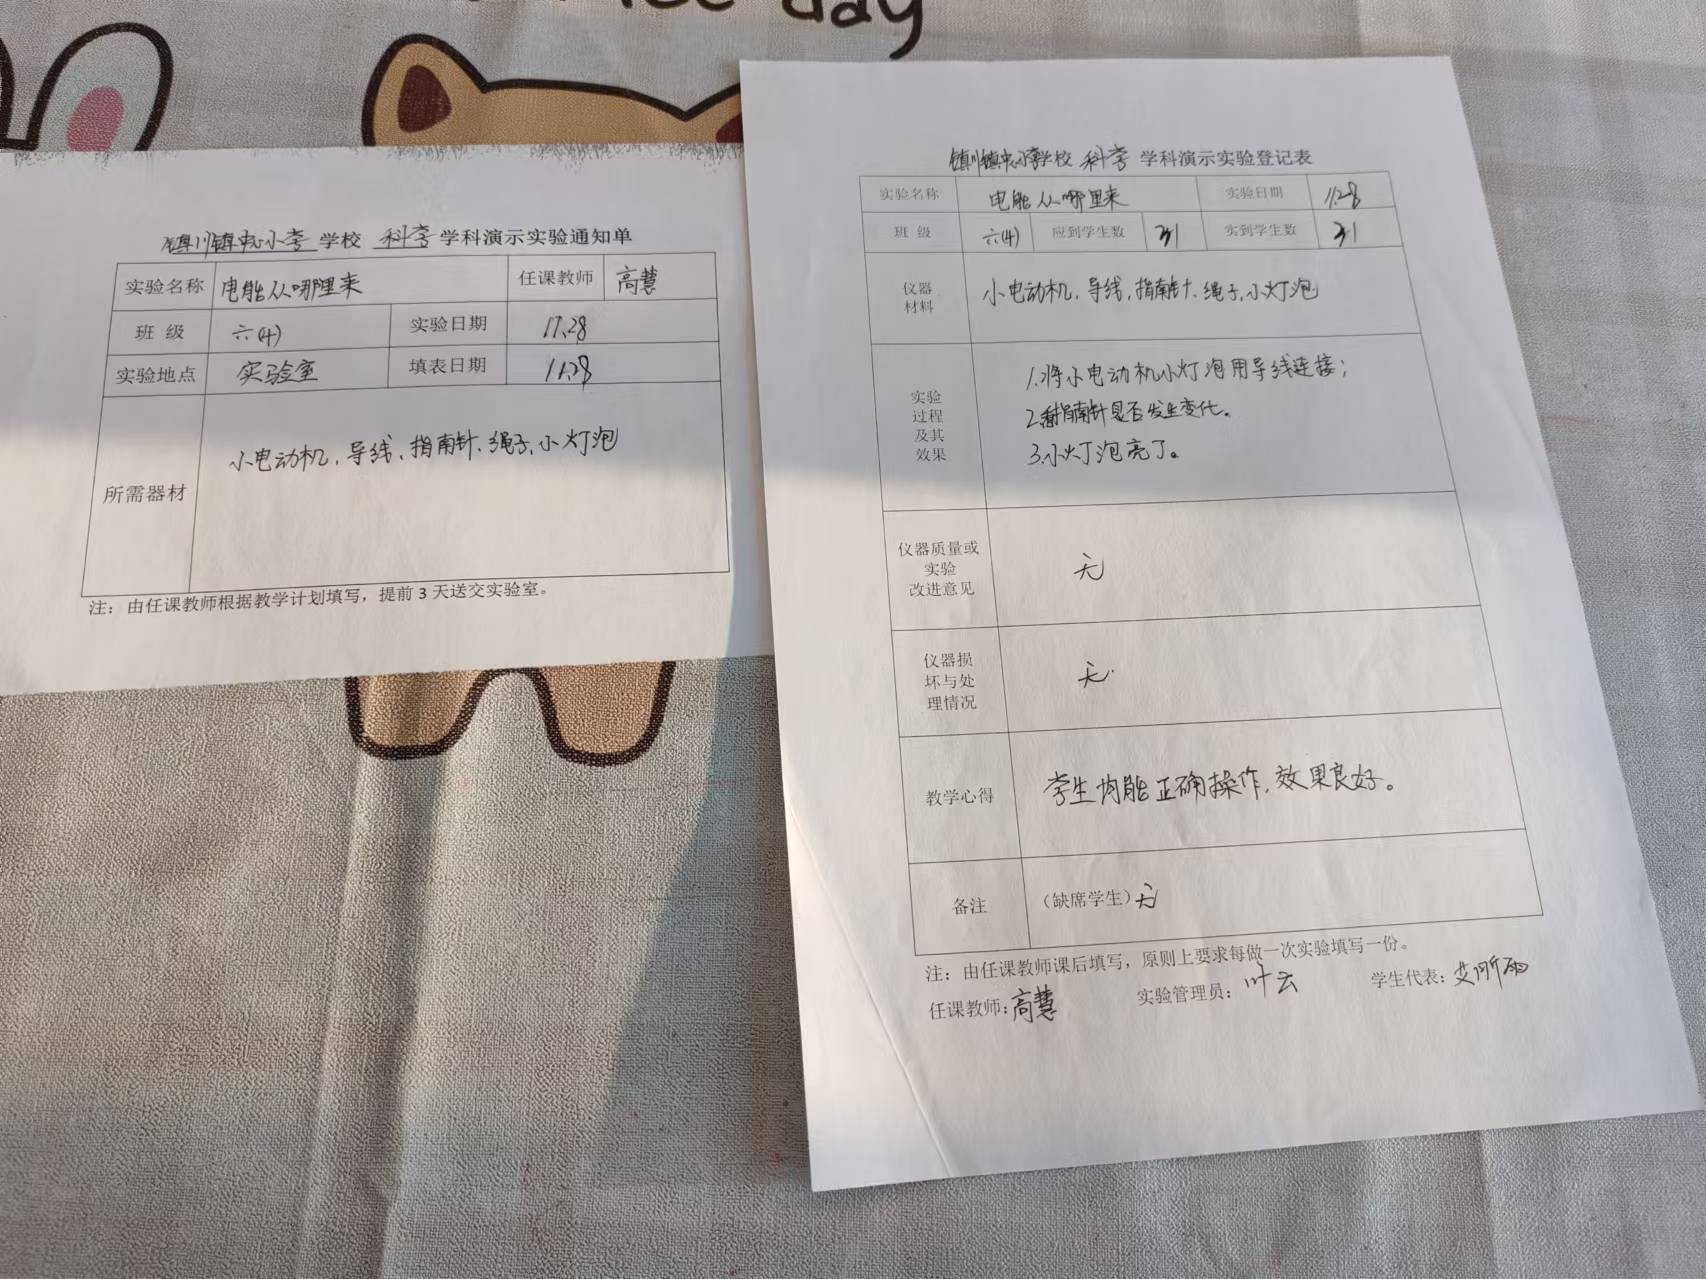 day
镇川镇中心小学 学校 科学 学科演示实验通知单
实验名称 电能从哪里来 任课教师 高慧
班 级 六(4) 实验日期 11.28
实验地点 实验室 填表日期 11.28
所需器材 小电动机、导线、指南针、绳子、小灯泡
注：由任课教师根据教学计划填写，提前 3 天送交实验室。
镇川镇中心小学学校 科学 学科演示实验登记表
实验名称 电能从哪里来 实验日期 11.28
班 级 六(4) 应到学生数 31 实到学生数 31
仪器
材料
小电动机、导线、指南针、绳子、小灯泡
实验
过程
及其
效果
1.将小电动机小灯泡用导线连接；
2.看指南针是否发生变化。
3.小灯泡亮了。
仪器质量或
实验
改进意见
无
仪器损
坏与处
理情况
无.
教学心得 学生均能正确操作，效果良好。
备注 （缺席学生）无
注：由任课教师课后填写，原则上要求每做一次实验填写一份。
任课教师：高慧 实验管理员：叶云 学生代表：艾听雨